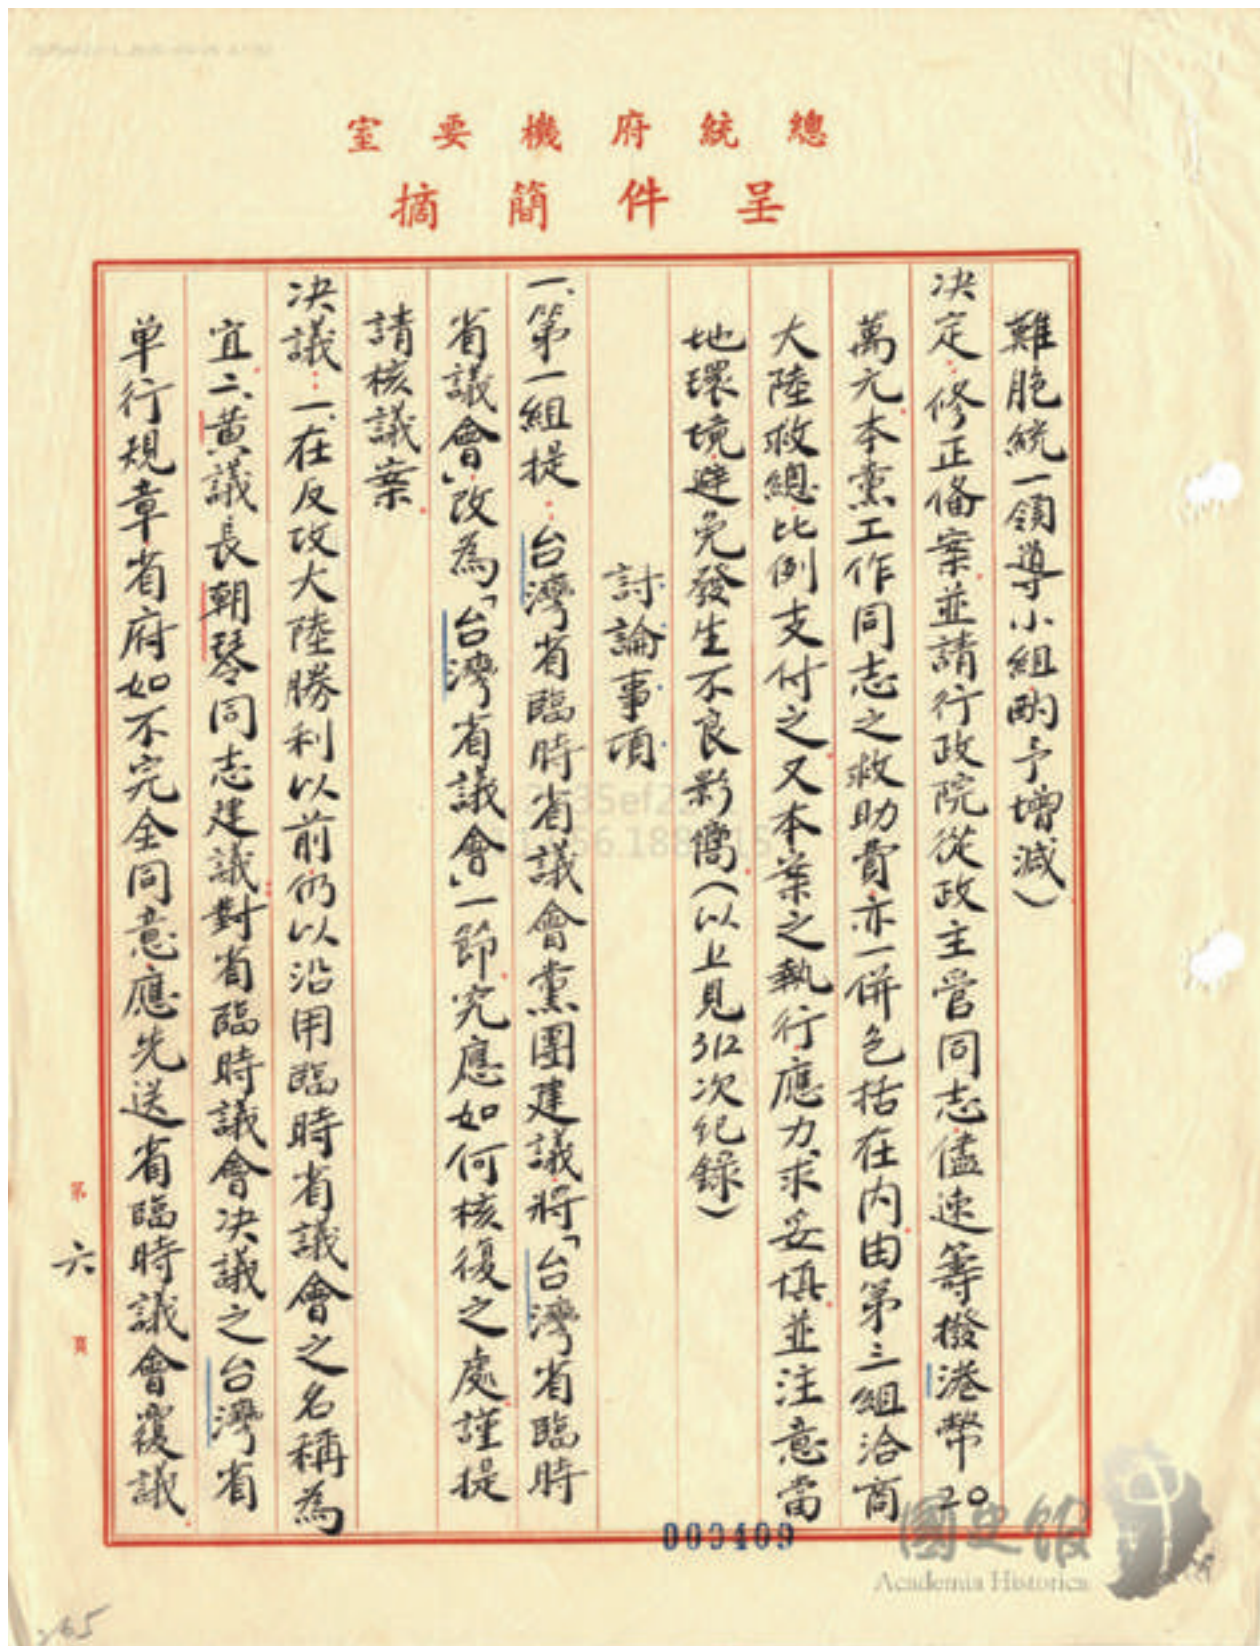 總統府機要室
呈件簡摘
難胞統一領導小組酌予增減）
決定：修正備案並請行政院從政主管同志儘速籌撥港幣20
萬元本黨工作同志之救助費亦一併包括在內由第三組洽商
大陸救總比例支付之又本案之執行應力求妥慎並注意當
地環境避免發生不良影響（以上見312次紀錄）
討論事項
一、第一組提：台灣省臨時省議會黨團建議將「台灣省臨時
省議會」改為「台灣省議會」一節究應如何核復之處謹提
請核議案
決議：一、在反攻大陸勝利以前仍以沿用臨時省議會之名稱為
宜二、黃議長朝琴同志建議對省臨時議會決議之台灣省
单行規章省府如不完全同意應先送省臨時議會覆議
第六頁
000409
國史館
Academia Historica
265